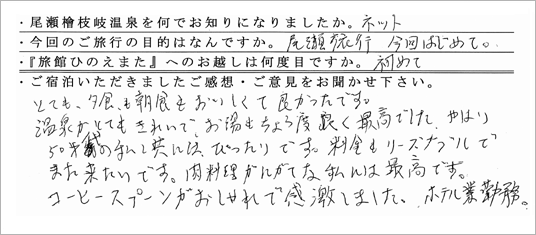 ・尾瀬檜枝岐温泉を何でお知りになりましたか。ネット
・今回のご旅行の目的はなんですか。尾瀬旅行 今回はじめて。
・『旅館ひのえまた』へのお越しは何度目ですか。初めて
・ご宿泊いただきましたご感想・ご意見をお聞かせ下さい。
とても、夕食も朝食もおいしくて良かったです。
温泉がとてもきれいで、お湯もちょう度良く最高でした。やはり
50才代の私し共には、ぴったりです。料金もリーズナブルで
また来たいです。肉料理がにがてな私しは最高です。
コーヒースプーンがおしゃれで感激しました。ホテル業勤務。